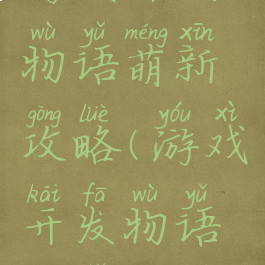 wù yǔ méng xīn
物语萌新
gōng lüè yóu xì
攻略(游戏
kāi fā wù yǔ
开发物语